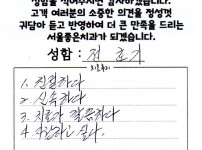 성함을 적어주시면 감사하겠습니다.
고객 여러분의 소중한 의견을 정성껏
귀담아 듣고 반영하여 더 큰 만족을 드리는
서울좋은치과가 되겠습니다.
성함 :
치료후기
1. 친절하다
2. 신속하다
3. 치료가 꼼꼼하다
4.